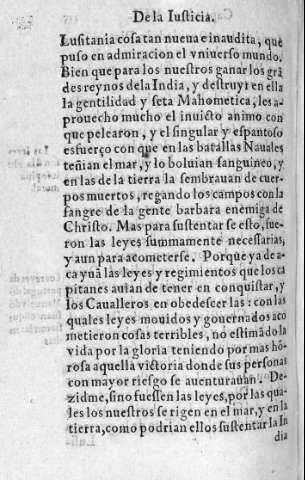 De la Iusticia.
Lusitania cosa tan nueua e inaudita, que
puso en admiracion el vniuerso mundo.
Bien que para los nuestros ganar los grã
des reynos dela India, y destruyr en ella
la gentilidad y seta Mahometica, les a-
prouecho mucho el inuicto animo con
que pelearon, y el singular y espantoso
esfuerço con que en las batallas Nauales
teñian el mar, y lo boluian sanguineo, y
en las de la tierra la sembrauan de cuer-
pos muertos, regando los campos con la
sangre de la gente barbara enemiga de
Christo. Mas para sustentar se esto, fue-
ron las leyes summamente necessarias,
y aun para acometerse. Porque ya de a-
ca yuã las leyes y regimientos que los ca
pitanes auian de tener en conquistar, y
los Caualleros en obedescer las: con las
quales leyes mouidos y gouernados aco
metieron cosas terribles, no estimãdo la
vida por la gloria teniendo por mas hõ-
rosa aquella victoria donde sus personas
con mayor riesgo se auenturauan. De-
zidme, sino fuessen las leyes, por las qua-
les los nuestros se rigen en el mar, y en la
tierra, como podrian ellos sustentar la In
dia